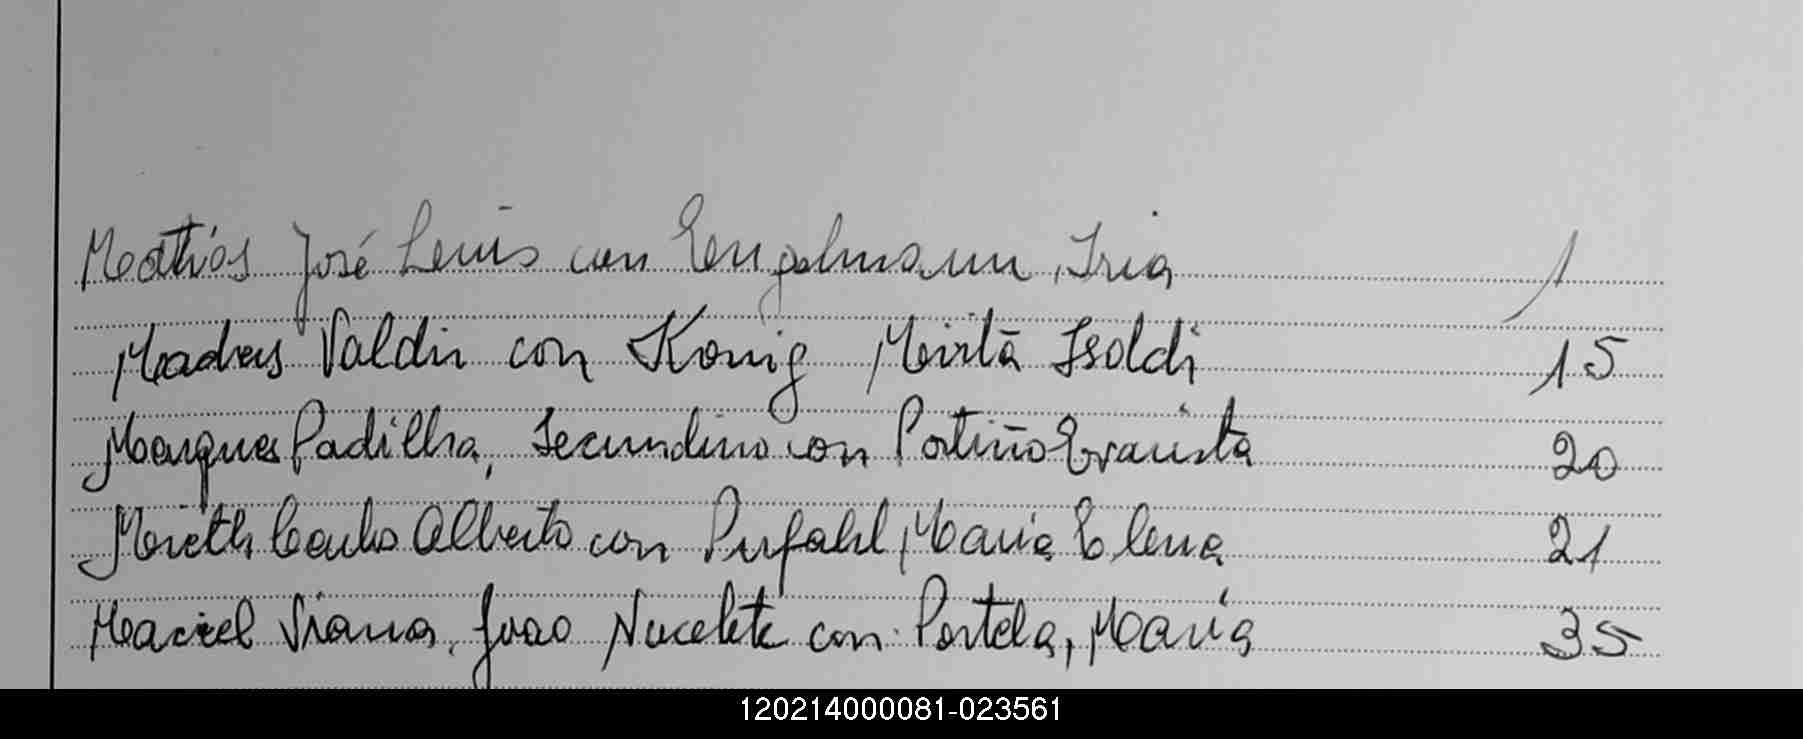 Mathias José Lenis con Engelmann, Iria 1
Madres Valdir con Konig Mirta Isoldi 15
Marques Padilha, Secundino con Portiño Evarista 20
Mieth Carlos Alberto con Pufahl, Maria Elena 21
Maciel Viana, Joao Nucelete con Portela, Maria 35
120214000081-023561